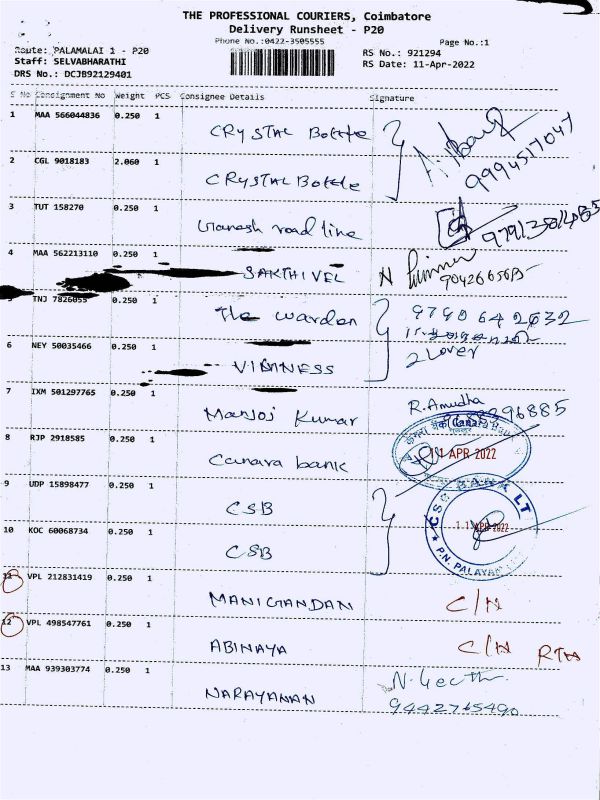 THE PROFESSIONAL COURIERS, Coimbatore
Delivery Runsheet - P20
Phone No.:0422-3505555
Page No.:1
Route: PALAMALAI 1 - P20
RS No.: 921294
Staff: SELVABHARATHI
RS Date: 11-Apr-2022
DRS No.: DCJB92129401
S No Consignment No Weight PCS Consignee Details Signature
1 MAA 566044836 0.250 1 CRYSTAL Bottle
9994517047
2 CGL 9018183 2.060 1 CRYSTAL Bottle
3 TUT 158270 0.250 1 Ganesh road line
4 MAA 562213110 0.250 1 SAKTHIVEL
TNJ 7826055 0.250 1 The warden 9790642632
6 NEY 50035466 0.250 1
7 IXM 501297765 0.250 1 Manjoj Kumar R. Amudha
96885
8 RJP 2918585 0.250 1 Canara bank 11 APR 2022
9 UDP 15898477 0.250 1 CSB
CSB BANK LT
11 APR 2022
P.N. PALAYAM
10 KOC 60068734 0.250 1 CSB
VPL 212831419 0.250 1 MANIGANDAN C/N
12 VPL 498547761 0.250 1 ABINAYA C/N RTN
13 MAA 939303774 0.250 1 NARAYANAN
9442765490